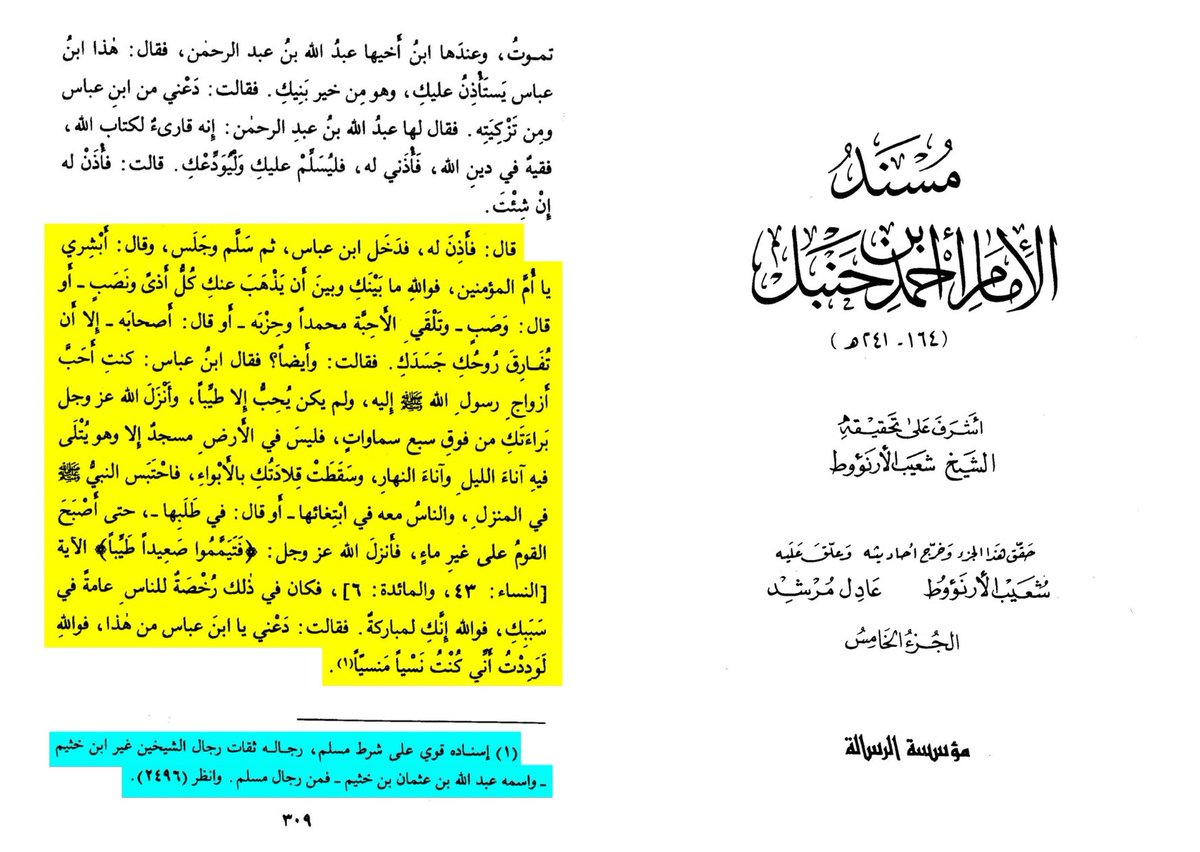 مُسْنَدُ
الإمَامِ أحْمَد بْن حَنْبَل
(١٦٤ - ٢٤١هـ)
أشرَفَ عَلى تحقيقه
الشيخ شعيب الأرنؤوط
حَقّق هَذا الجزء وَخرّج أحاديثه وَعلّق عَليه
شعَيب الأرنؤوط عَادل مُرشد
الجزءُ الخامسُ
مؤسسة الرسالة
تموتُ، وعندَها ابنُ أَخيها عبدُ الله بنُ عبد الرحمٰن، فقال: هٰذا ابنُ
عباس يَستَأْذِنُ عليكِ، وهو مِن خير بَنِيكِ. فقالت: دَعْني من ابنِ عباس
ومِن تَزْكِيَتِه. فقال لها عبدُ الله بنُ عبدِ الرحمٰن: إنه قارىءٌ لكتاب الله،
فقيهٌ في دينِ الله، فَأْذَني له، فليُسَلِّمْ عليكِ وَلْيُوَدِّعْكِ. قالت: فأْذَنْ له
إنْ شِئْتَ.
قال: فأَذِنَ له، فدَخَل ابن عباس، ثم سَلَّم وجَلَس، وقال: أَبْشِري
يا أُمَّ المؤمنين، فوالله ما بَيْنَكِ وبينَ أن يَذْهَبَ عنكِ كُلُّ أذىً ونَصَبٍ ـ أو
قال: وَصَبٍ ـ وتَلْقَي الأحِبَّة محمداً وحِزْبَه ـ أو قال: أصحابَه ـ إلا أن
تُفَارِقَ رُوحُكِ جَسَدَكِ. فقالت: وأيضاً؟ فقال ابنُ عباس: كنتِ أَحَبَّ
أزواجِ رسولِ الله ﷺ إليه، ولم يكن يُحِبُّ إلا طيِّباً، وأَنْزَلَ الله عز وجل
بَراءَتَكِ من فوقِ سبع سماواتٍ، فليسَ في الأرضِ مسجدٌ إلا وهو يُتْلَى
فيهِ آناءَ الليلِ وآناءَ النهارِ، وسَقَطَتْ قِلادَتُكِ بالأَبْواءِ، فاحْتَبَس النبيُّ ﷺ
في المنزلِ، والناسُ معه في ابْتِغائها ـ أو قال: في طَلَبِها ـ، حتى أَصْبَحَ
القومُ على غيرِ ماءٍ، فأَنزلَ الله عز وجل: ﴿فَتَيَمَّمُوا صَعِيداً طَيِّباً﴾ الآية
[النساء: ٤٣، والمائدة: ٦]، فكان في ذٰلك رُخْصَةٌ للناسِ عامةً في
سَبَبِكِ، فوالله إنَّكِ لمباركةٌ. فقالت: دَعْني يا ابنَ عباس من هٰذا، فواللهِ
لَوَدِدْتُ أَنِّي كُنْتُ نَسْياً مَنسيّاً(١).
(١) إسناده قوي على شرط مسلم، رجاله ثقات رجال الشيخين غير ابن خثيم
ـ واسمه عبد الله بن عثمان بن خثيم ـ فمن رجال مسلم. وانظر (٢٤٩٦).
٣٠٩